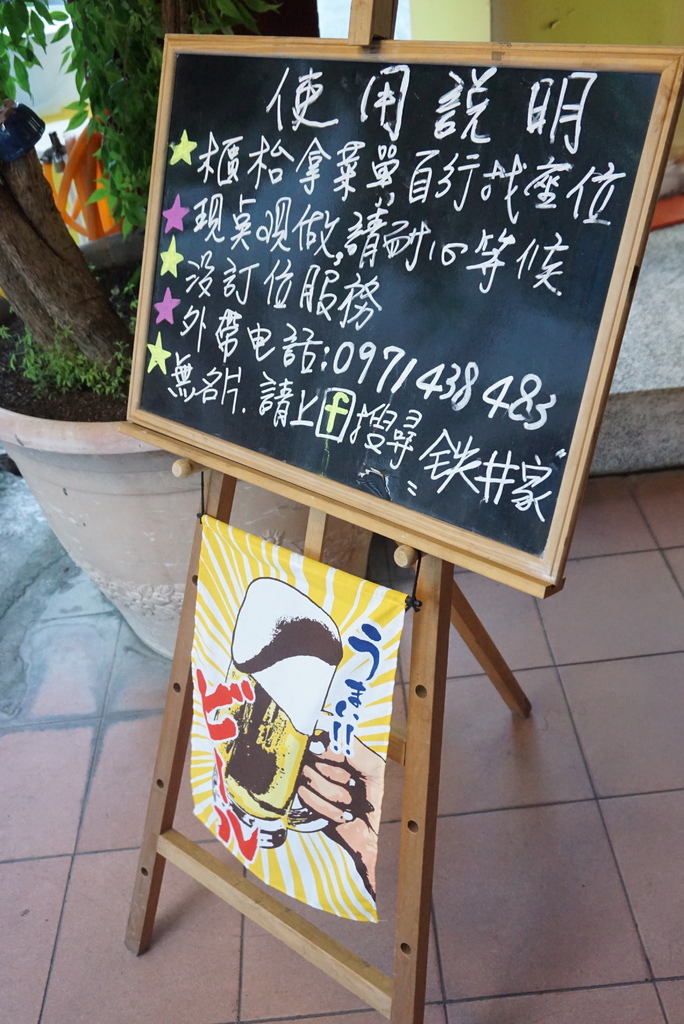 使用說明
櫃枱拿菜單自行找座位
現点現做,請耐心等候
沒訂位服務
外帶电話:0971438483
無名片.請上f搜尋"鉄井家"
うまい!!
ビール